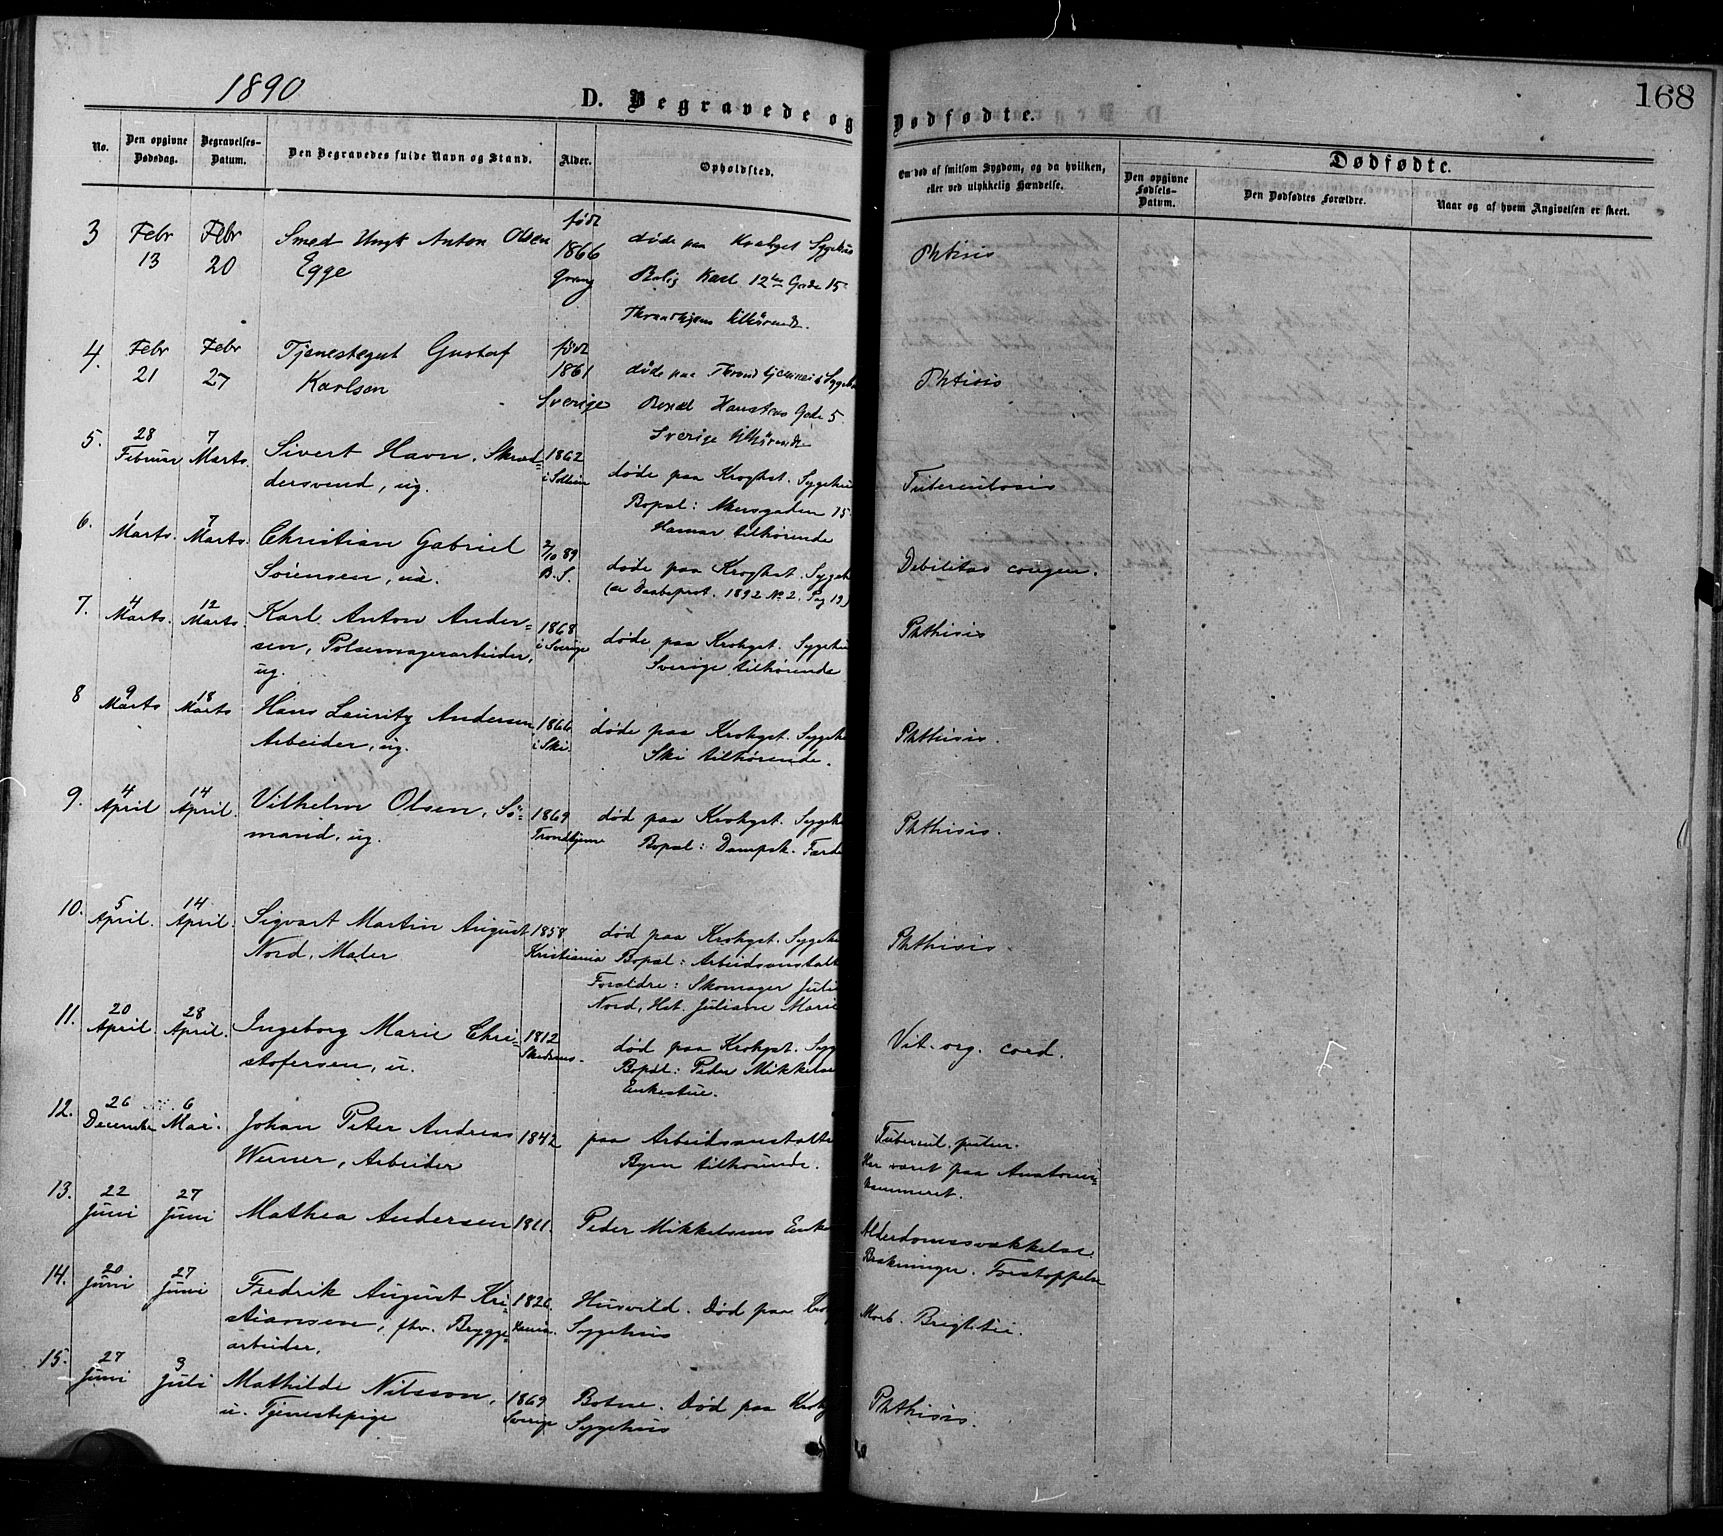 1890
D. Begravede og Dødfødte.
168
No.
Den opgivne Dødsdag.
Begravelses-Datum.
Den Begravedes fulde Navn og Stand.
Alder.
Opholdsted.
Om død af smitsom Sygdom, og da hvilken, eller ved ulykkelig Hændelse.
Dødfødte.
Den opgivne Fødsels-Datum.
Den Dødfødtes Forældre.
Naar og af hvem Angivelsen er skeet.
3 Febr 13 Febr 20 Smed Ungk Anton Olsen
Egge
født 1866
døde paa Sygehus
Bolig 12te Gade 15
Throndhjem tilhørende.
Phtisis
4. Febr 21 Febr 27 Tjenestegut Gustaf
Karlsen
født 1861 Sverige
døde paa
Gade 5
Sverige tilhørende
Phtisis
5. 28 Februar 7 Marts. Sivert Havn, Skræd-
dersvend, ug.
1862
døde paa Kroghst. Sygehu
Bopæl: Akersgaden 15
Hamar tilhørende
Tuberculosis
6. 1 Marts. 7 Marts. Christian Gabriel
Sørensen, uæ.
2/10 89 B. S.
døde paa Kroghst. Sygeh
(se Daabsprot. 1892 No 2. Pag 19)
Debilitas congen.
7. 4 Marts. 12 Marts. Karl Anton Ander-
sen, Pølsemagerarbeider,
ug.
1868 i Sverige
døde paa Krohgst. Sygehu
Sverige tilhørende
Phthisis
8 9 Marts 18 Marts Hans Lauritz Andersen
Arbeider, ug.
1866 i Ski.
døde paa Krohgst. Sygehu
Ski tilhørende.
Phthisis.
9. 4 April 14 April. Vilhelm Olsen, Sø-
mand, ug.
1869 Trondhjem
død paa Krohgst. Sygeh
Bopæl: Dampsk. Færde
Phthisis.
10. 5 April. 14 April. Sigvart Martin August
Nord, Maler
1858 Kristiania
død paa Krohgst. Sygeh
Bopæl: Arbeidsanstalt
Forældre: Skomager Juli
Nord, Hst. Juliane Marie
Phthisis.
11. 20 April. 28 April. Ingeborg Marie Chri-
stofersen, u.
1812
død paa Krohgst. Syg
Bopæl: Peder Mikkelse
Enkestue.
Vit. org. cord.
12. 26 December 6 Mai. Johan Peter Andreas
Werner, Arbeider
1842
paa Arbeidsanstalte
Byen tilhørende.
Tubercul. pulm.
Har været paa Anatomi-
kammeret.
13. 22 Juni 27 Juni Mathea Andersen
1811.
Peder Mikkelsens Enke
Alderdomssvækkelse.
Brækninger. Forstoppelse
14. 20 Juni 27 Juni Fredrik August Kri-
stiansen, fhv. Brygge-
arbeider.
1826.
Husvild. Død paa
Sygehus
Morb. Brightii.
15. 27 Juni 3 Juli Mathilde Nilsson,
u. Tjenestepige
1869 Sverige
Botne. Død paa Krohg
Sygehus
Phthisis.